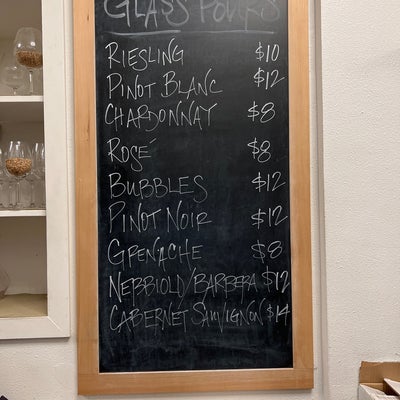 GLASS POURS
RIESLING $10
PINOT BLANC $12
CHARDONNAY $8
ROSÉ $8
BUBBLES $12
PINOT NOIR $12
GRENACHE $8
NEBBIOLO/BARBERA $12
CABERNET SAUVIGNON $14